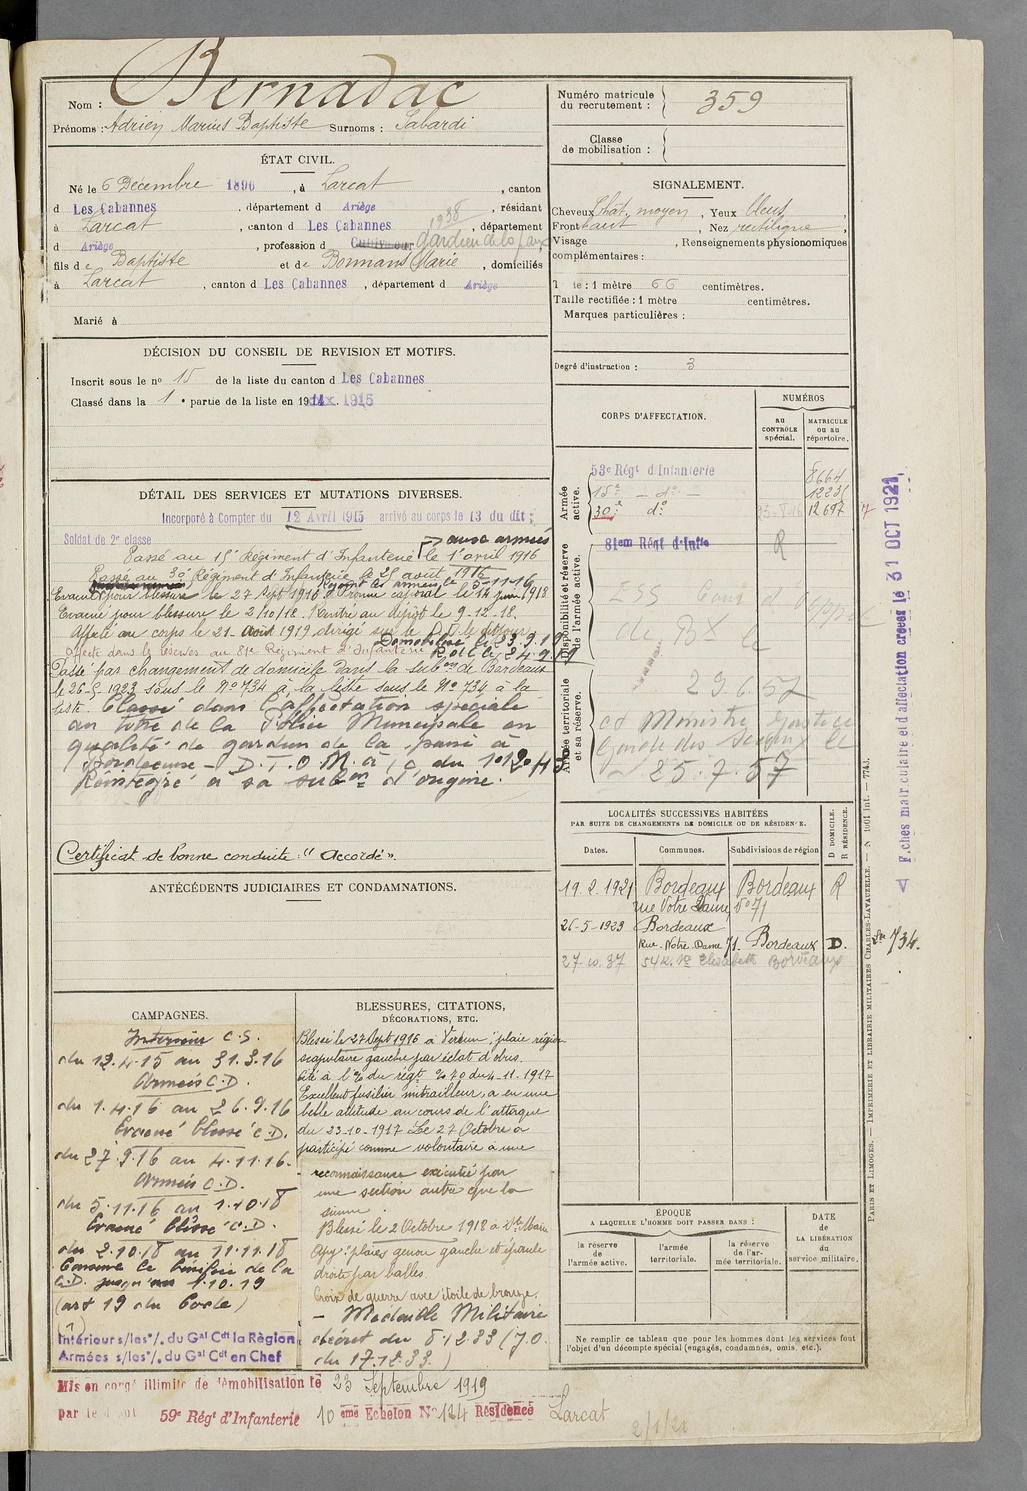 Nom : Bernadac
Prénoms : Adrien Marius Baptiste Surnoms : Sabardi
Numéro matricule du recrutement : 359
Classe de mobilisation :
ÉTAT CIVIL.
Né le 6 Décembre 1896, à Larcat, canton
d Les Cabannes, département d Ariège, résidant
à Larcat, canton d Les Cabannes, département
1938
d Ariège, profession d Cultivateur gardien de la paix
fils de Baptiste et de Bonnans Marie, domiciliés
à Larcat, canton d Les Cabannes, département d Ariège
Marié à
SIGNALEMENT.
Cheveux Chât. moyen, Yeux bleus,
Front haut, Nez rectiligne,
Visage, Renseignements physionomiques
complémentaires :
T le : 1 mètre 66 centimètres.
Taille rectifiée : 1 mètre centimètres.
Marques particulières :
Degré d'instruction : 3
DÉCISION DU CONSEIL DE REVISION ET MOTIFS.
Inscrit sous le no 15 de la liste du canton d Les Cabannes
Classé dans la 1 e partie de la liste en 1915
CORPS D'AFFECTATION.
NUMÉROS
au CONTRÔLE spécial.
MATRICULE ou au répertoire.
Armée active.
53e Régt d'Infanterie 8664
15e - do -
30e do 12697
Disponibilité et réserve de l'armée active.
81em Régt d'Infie R
Armée territoriale et sa réserve.
29.6.57
25.7.57
DÉTAIL DES SERVICES ET MUTATIONS DIVERSES.
Incorporé à Compter du 12 Avril 1915 arrivé au corps le 13 du dit ;
Soldat de 2e classe
aux armées
Passé au 15e Régiment d'Infanterie le 1er avril 1916
Passé au 30e Régiment d'Infanterie le 25 août 1916
Evacué pour blessure le 27 Sept 1916 Rejoint les armées le 5-11-16 Promu caporal le 14 juin 1918
Evacué pour blessure le 2/10/18. Rentré au dépôt le 9-12-18.
Démobilisé le 23.9.19
Affecté dans les réserves au 81e Régiment d'Infanterie
Passé par changement de domicile dans la subon de Bordeaux
le 26-5-1923 sous le No 734 à la liste sous le No 734 à la
liste. Classé dans l'affectation spéciale
au titre de la Police Municipale en
qualité de gardien de la paix à
Bordeaux - D.T.O.M.
Réintégré à sa subon d'origine.
Certificat de bonne conduite : "Accordé".
ANTÉCÉDENTS JUDICIAIRES ET CONDAMNATIONS.
LOCALITÉS SUCCESSIVES HABITÉES
PAR SUITE DE CHANGEMENTS DE DOMICILE OU DE RÉSIDENCE.
Dates. Communes. Subdivisions de région D DOMICILE. R RÉSIDENCE.
19.2.1921 Bordeaux Bordeaux R
rue Notre Dame No 71
26-5-1923 Bordeaux
Rue Notre Dame 71. Bordeaux D.
734.
27.10.37 54 Bordeaux
CAMPAGNES.
Intérieur C.S.
du 12.4.15 au 31.3.16
Armées C.D.
du 1.4.16 au 26.9.16
Evacué blessé C.D.
du 27.9.16 au 4.11.16.
Armées C.D.
du 5.11.16 au 1.10.18
Evacué blessé C.D.
du 2.10.18 au 11.11.18
Conserve le bénéfice de la
C.D. jusqu'au 1.10.19
(art 19 du Code)
Intérieur s/les o/. du Gal Cdt la Région
Armées s/les o/. du Gal Cdt en Chef
BLESSURES, CITATIONS,
DÉCORATIONS, ETC.
Blessé le 27 Sept 1916 à Verdun ; plaie région
scapulaire gauche par éclat d'obus.
Cité à l'O. du régt No 70 du 4-11-1917
Excellent fusilier mitrailleur, a eu une
belle attitude au cours de l'attaque
du 23-10-1917 Le 27 Octobre a
participé comme volontaire à une
reconnaissance exécutée par
une section autre que la
sienne.
Blessé le 2 Octobre 1918 à Ste Marie
à Py : plaies genou gauche et épaule
droite par balles.
Croix de guerre avec étoile de bronze.
- Médaille Militaire
décret du 8.12.33 (J.O.
du 17.12.33.)
ÉPOQUE
A LAQUELLE L'HOMME DOIT PASSER DANS :
la réserve de l'armée active.
l'armée territoriale.
la réserve de l'armée territoriale.
DATE de LA LIBÉRATION du service militaire.
Ne remplir ce tableau que pour les hommes dont les services font
l'objet d'un décompte spécial (engagés, condamnés, omis, etc.).
Mis en congé illimité de démobilisation le 23 Septembre 1919
par le dépôt 59e Régt d'Infanterie 10 eme Echelon No 124 Résidence Larcat
Fiches matriculaire et d'affectation créées le 31 OCT 1921
PARIS ET LIMOGES. — IMPRIMERIE ET LIBRAIRIE MILITAIRES CHARLES-LAVAUZELLE.